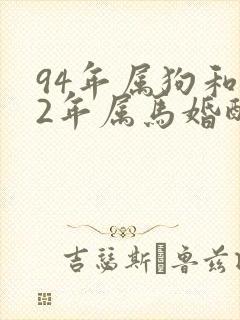 94年属狗和
2年属马婚配
吉瑟斯 鲁兹